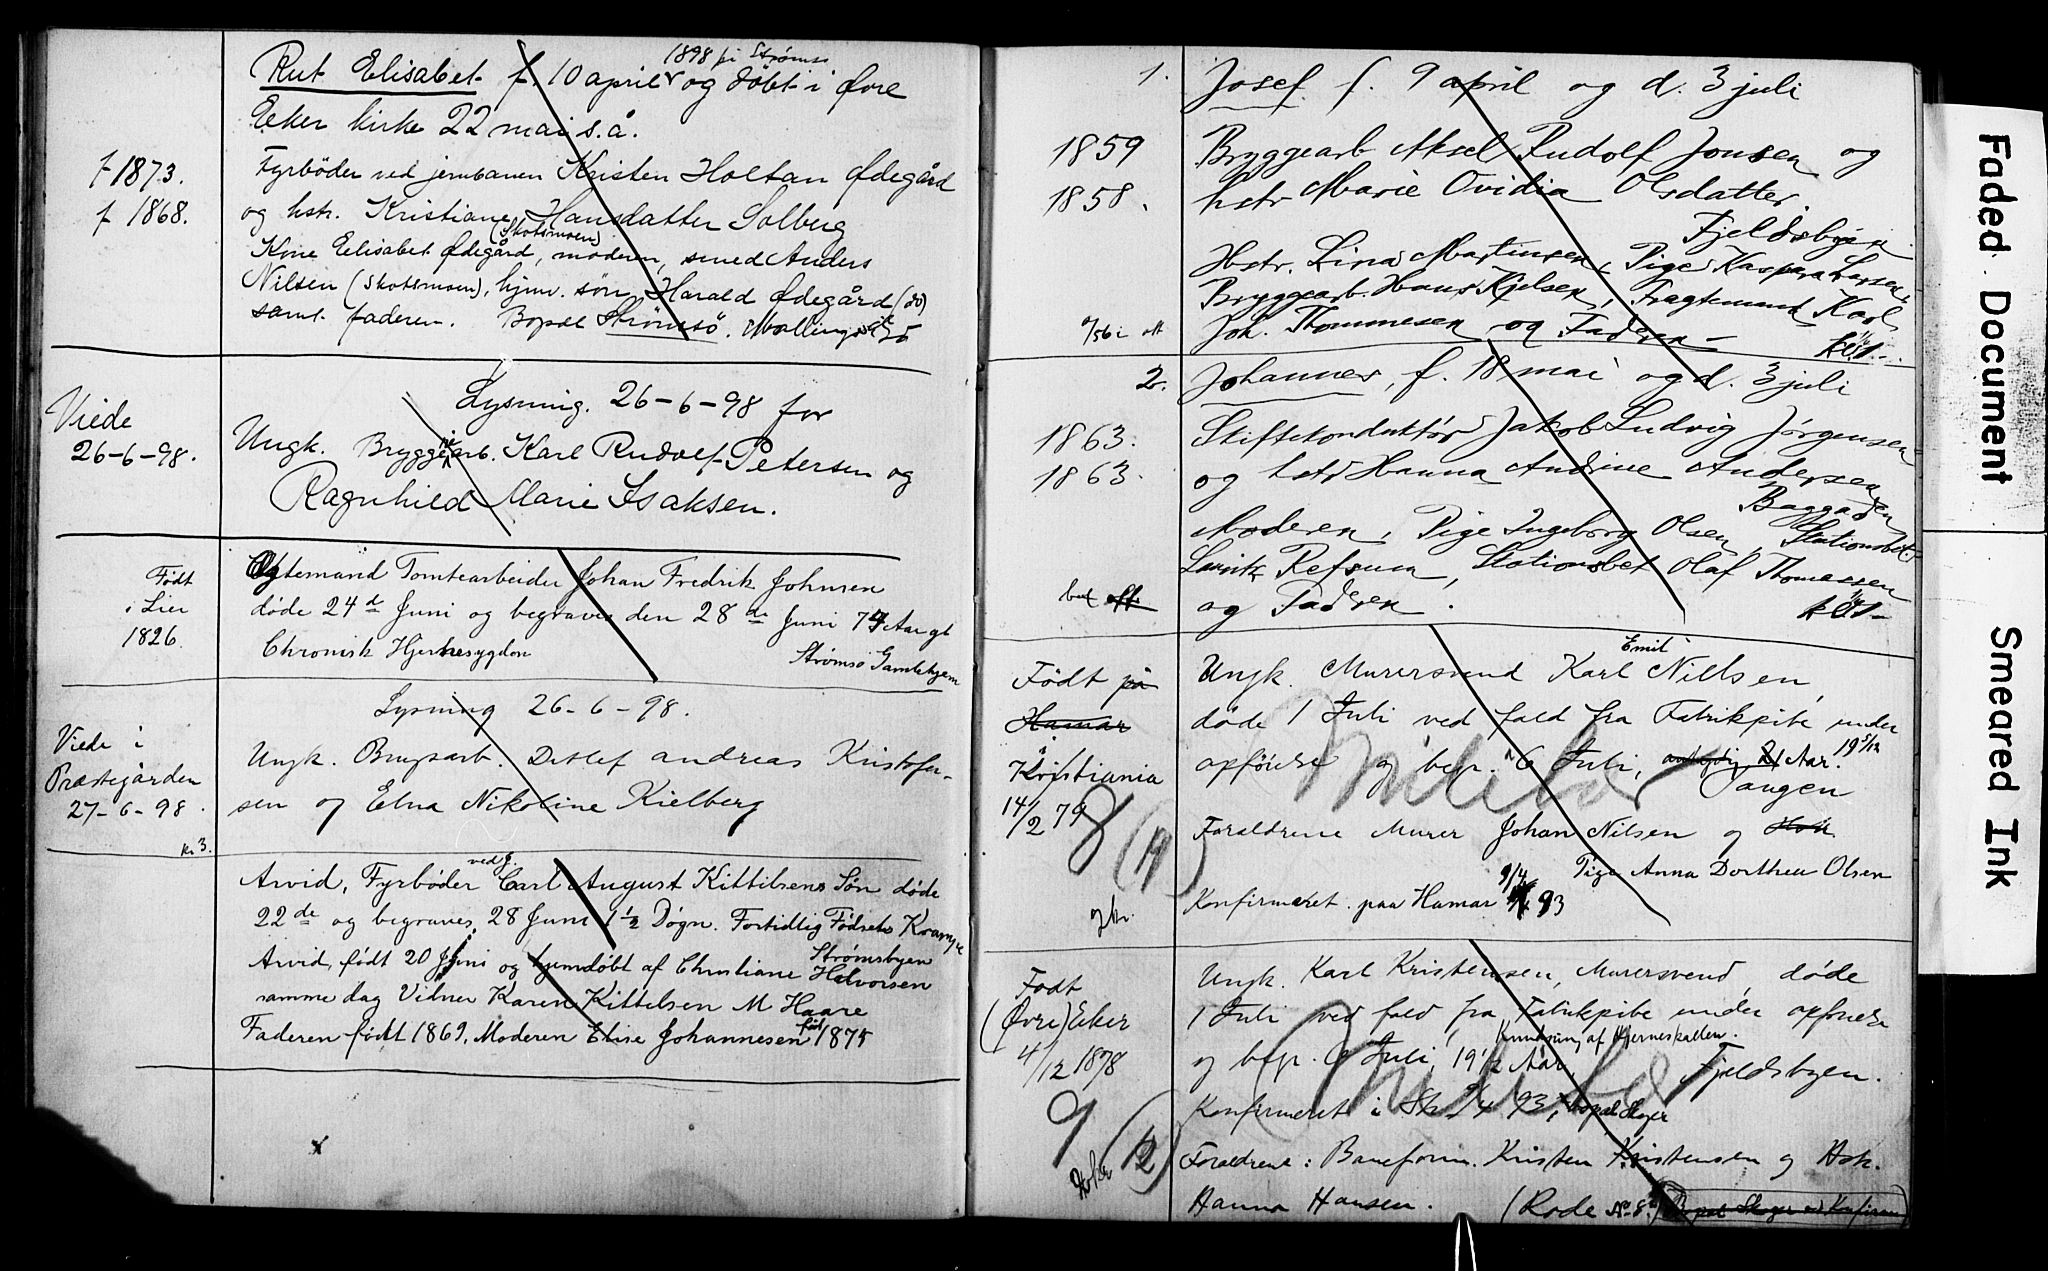 1898 på Strømsø
Rut Elisabet f. 10 april og döbt i Øvre
Eker kirke 22 mai s.å.
f 1873.
Fyrböder ved jernbanen Kristen Holtan Ødegård
f 1868.
og hstr. Kristiane Hansdatter Solberg
(Skotsmoen)
Kone Elisabet Ødegård, moderen, smed Anders
Nilsen (Skotsmoen), hjmv. søn Harald Ødegård (do)
samt faderen. Bopæl Strømsø.
Lysning. 26-6-98 for
Viede
26-6-98.
Ungk. Bryggearb. Karl Rudolf Petersen og
Ragnhild Marie Isaksen.
Født
i Lier
1826
Egtemand Tomtearbeider Johan Fredrik Johnsen
døde 24 de Juni og begraves den 28 de Juni 74 Aar gl
Chronisk Hjernesygdom Strømsø Gamlehjem
Lysning 26-6-98.
Viede i
Præstegården
27-6-98.
Ungk. Brugsarb. Detlef Andreas Kristofer-
sen og Elna Nikoline Kielberg
kr 3.
ved J.
Arvid, Fyrbøder Carl August Kittilsens Søn døde
22 de og begraves 28 Juni 1 1/2 Døgn. Fortidlig Fødsel Krampe
Strømsbyen
Arvid, født 20 Juni og hjemdøbt af Christiane Halvorsen
samme dag Vidner Karen Kittelsen M Haare
Faderen født 1869, Moderen Elise Johannesen født 1875
1. Josef f. 9 april og d. 3 juli
1859
Bryggearb Aksel Rudolf Jonsen og
1858.
hstr Marie Ovidia Olsdatter.
Fjeldsbyen.
Hstr. Lina Martinsen, Pige Kaspara Larsen,
Bryggearb. Hans Kjelsen, Fragtemand Karl
Joh. Thommesen og Faderen
2. Johannes, f. 18 mai og d. 3 juli
1863.
Skiftekonduktør Jakob Ludvig Jørgensen
1863.
og hstr Hanna Andrine Andersen
Baggården
Moderen, Pige Ingeborg Olsen, Stationsbet.
Laurits Refsum, Stationsbet Olaf Thomassen
og Faderen.
Født på
Hamar
Kristiania
14/2 79
Emil
Ungk. Murersvend Karl Nilsen,
døde 1 Juli ved fald fra Fabrikpibe under
opførelse og begr. 6 Juli, 21 Aar. 19 5/12
Tangen
8 (A)
Forældrene Murer Johan Nilsen og
Pige Anna Dorthea Olsen
Konfirmeret paa Hamar 9/4 93
Født
(Øvre) Eker
4/12 1878
Ungk. Karl Kristensen, Murersvend, døde
1 Juli ved fald fra Fabrikpibe under opførelse
Knusning af Hjerneskallen.
og begr. 6 Juli, 19 1/2 Aar, Fjeldsbyen.
9 (12)
Konfirmeret i Sk. 2/4 93, bopæl Skoger
Forældrene: Baneform. Kristen Kristensen og Hsk.
Hanna Hansen. (Rode No. 8)
Bopæl Skoger ved Konfirm
Faded Document
Smeared Ink